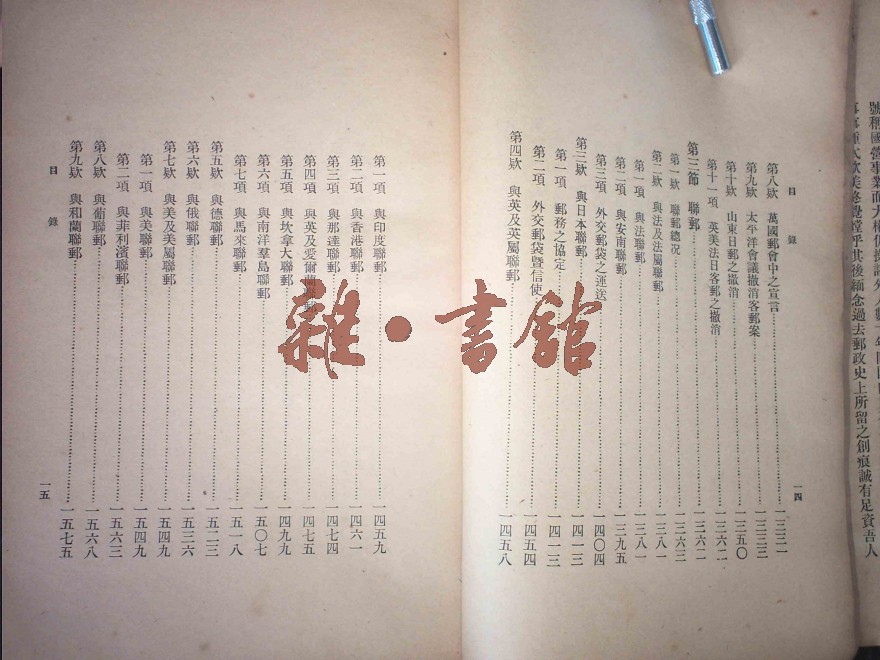 號稱國營事業而大權仍操諸外人數十年
瞠乎其後緬念過去郵政史上所留之創痕誠有足資吾人
目錄
一四
第八欵 萬國郵會中之宣言……一三三一
第九欵 太平洋會議撤消客郵案……一三三三
第十欵 山東日郵之撤消……一三五〇
第十一項 英美法日客郵之撤消……一三六二
第三節 聯郵
第一欵 聯郵總況……一三六三
第二欵 與法及法屬聯郵……一三八一
第一項 與法聯郵……一三八一
第二項 與安南聯郵……一三九五
第三項 外交郵袋之運送……一四〇四
第三欵 與日本聯郵……一四一三
第一項 郵務之協定……一四一三
第二項 外交郵袋暨信使……一四五四
第四欵 與英及英屬聯郵……一四五八
第一項 與印度聯郵……一四五九
第二項 與香港聯郵……一四六一
第三項 與那達聯郵……一四七四
第四項 與英及愛爾蘭聯郵……一四七五
第五項 與坎拿大聯郵……一四九九
第六項 與南洋羣島聯郵……一五〇七
第七項 與馬來聯郵……一五一八
第五欵 與德聯郵……一五二三
第六欵 與俄聯郵……一五三六
第七欵 與美及美屬聯郵……一五四九
第一項 與美聯郵……一五四九
第二項 與菲利濱聯郵……一五六三
第八欵 與葡聯郵……一五六八
第九欵 與和蘭聯郵……一五七五
目錄
一五
雜·書館